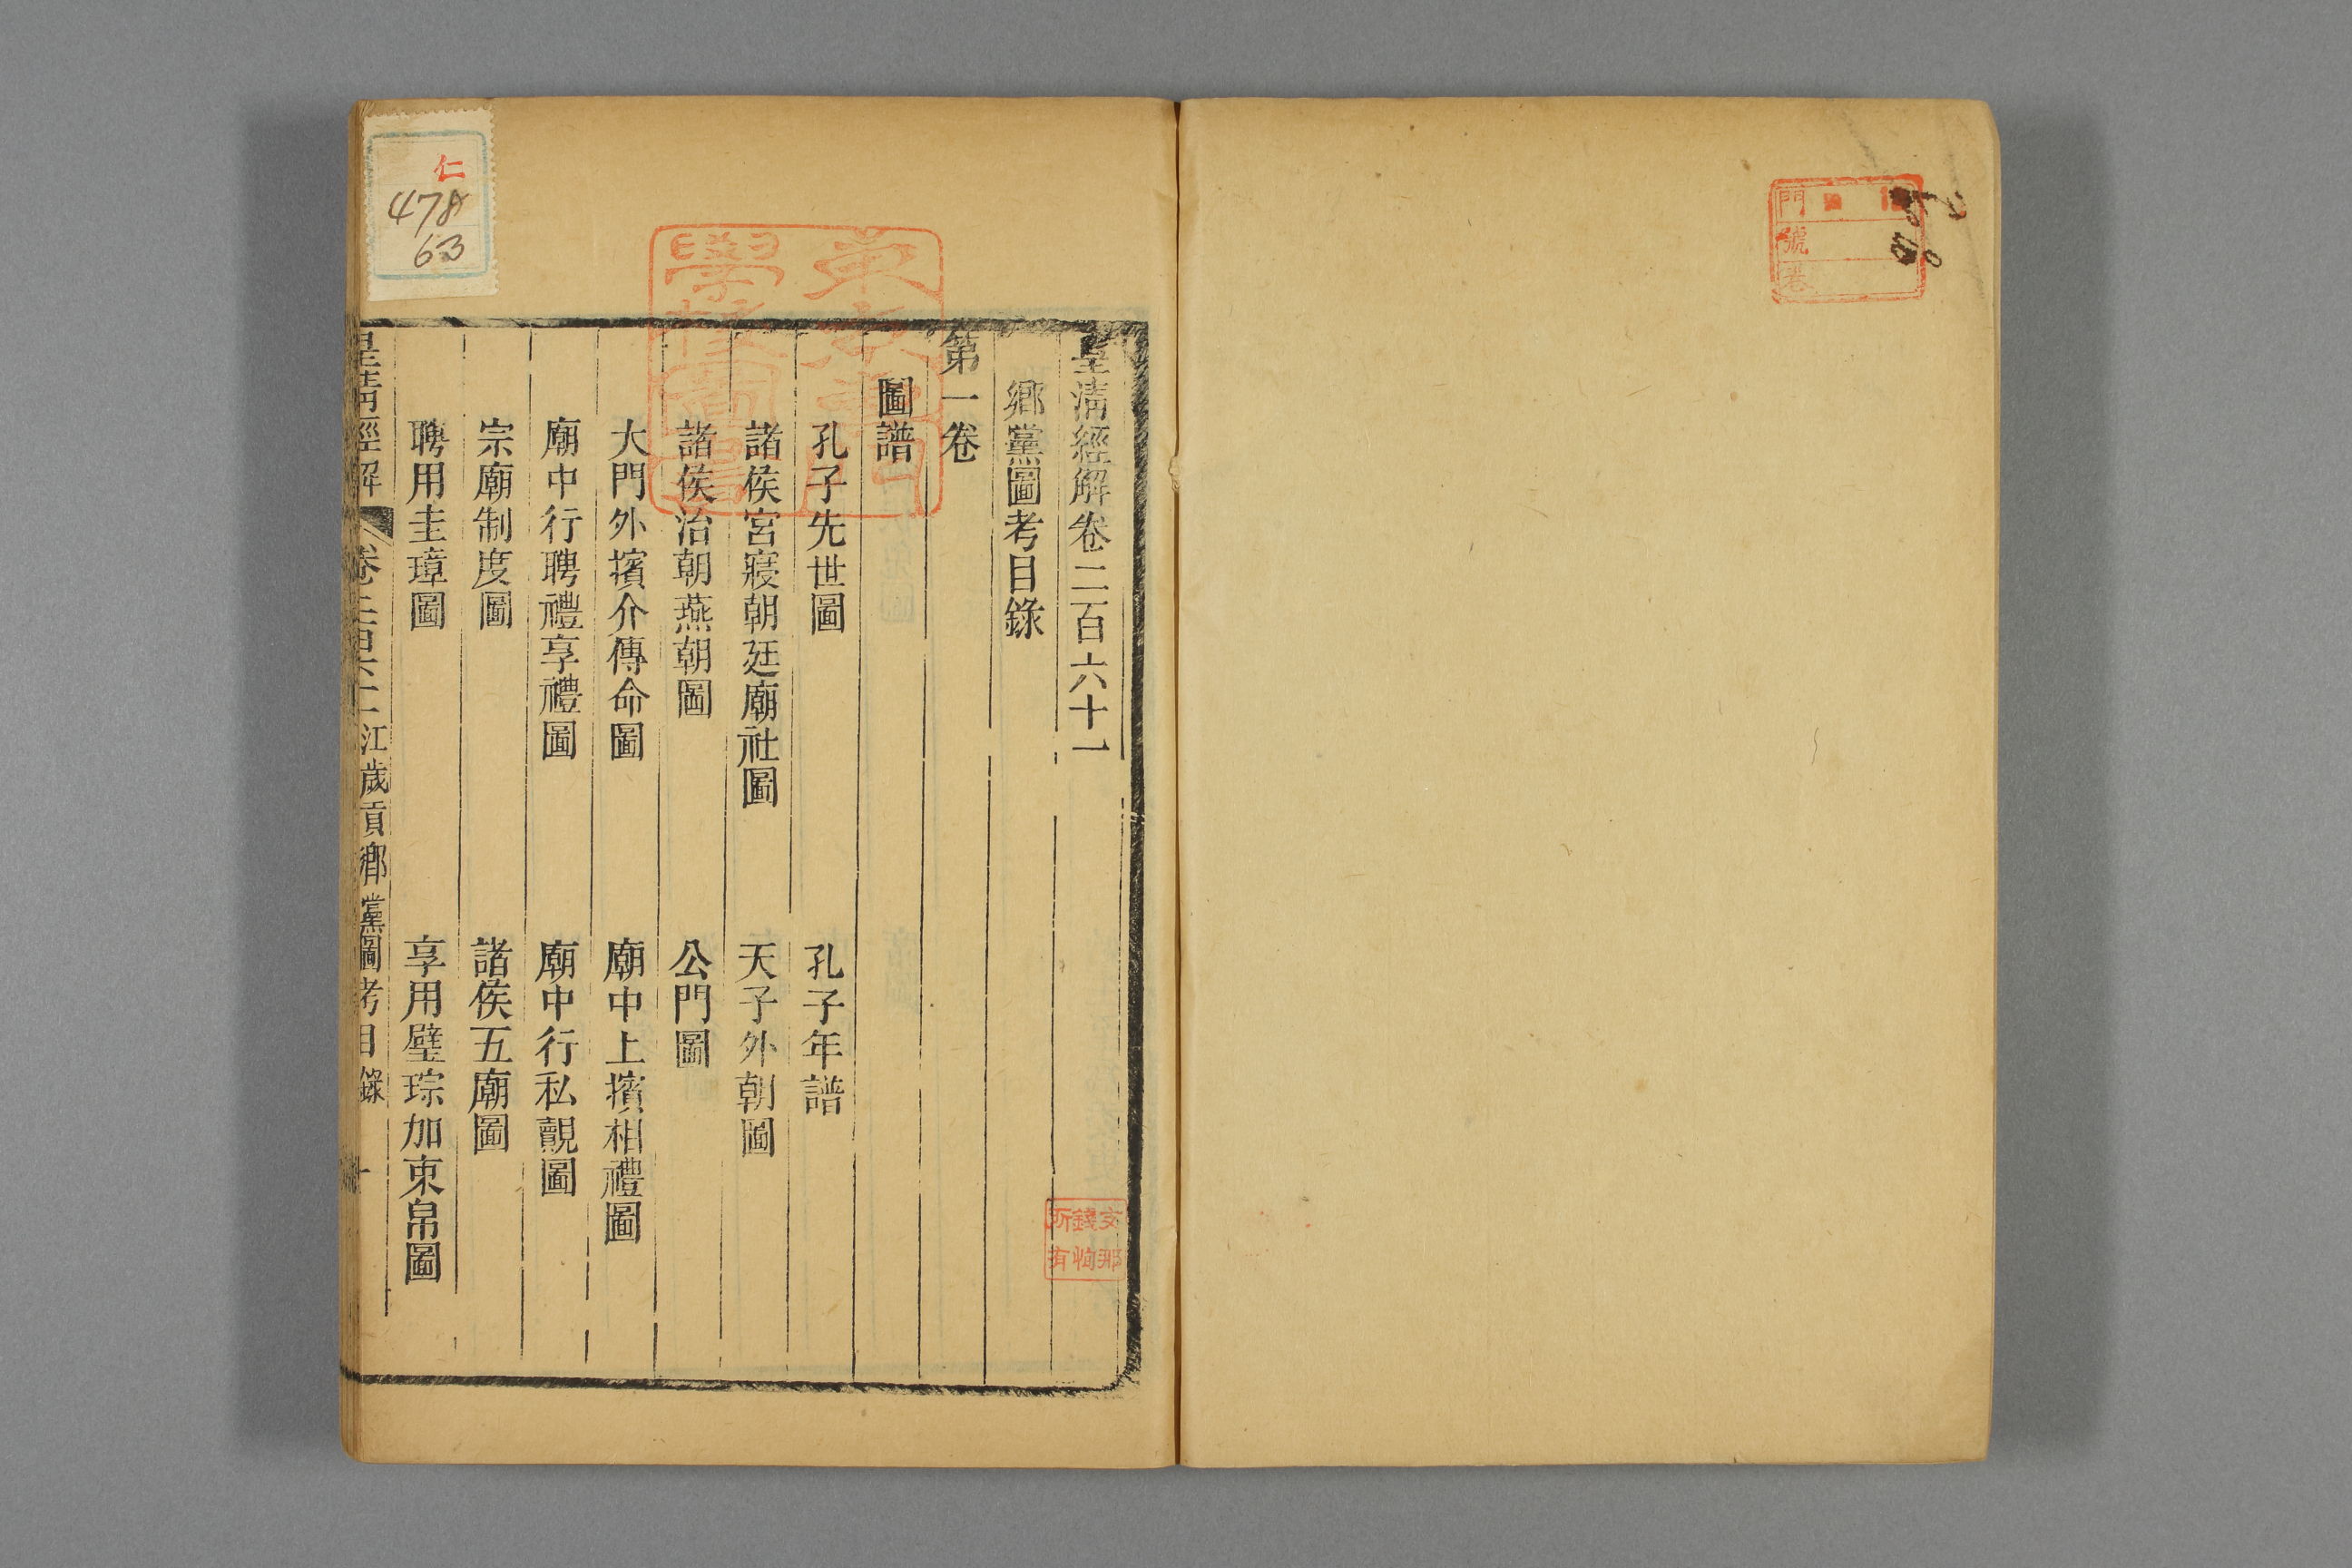 門
號
皇清經解卷二百六十一
鄉黨圖考目錄
第一卷
圖譜
孔子先世圖 孔子年譜
諸侯宮寢朝廷廟社圖 天子外朝圖
諸侯治朝燕朝圖 公門圖
大門外擯介傳命圖 廟中上擯相禮圖
廟中行聘禮享禮圖 廟中行私覿圖
宗廟制度圖 諸侯五廟圖
聘用圭璋圖 享用璧琮加束帛圖
皇清經解 卷二百六十一 江歲貢鄉黨圖考目錄 一
仁
478
63
東京專門
學校圖書
文那
錢恂
所有